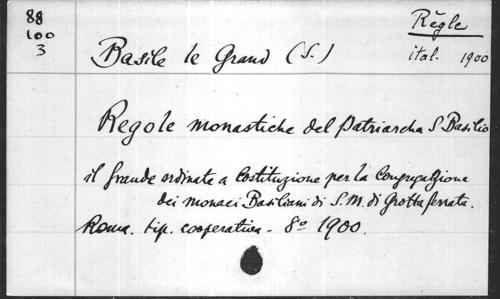 88
100
3
Règle
ital. 1900
Basile le Grand (S.)
Regole monastiche del Patriarcha S. Basilio
il Grande ordinate a Costituzione per la Congregazione
dei monaci Basiliani di S. M. di Grottaferrata.
Roma. tip. cooperativa - 8º 1900.